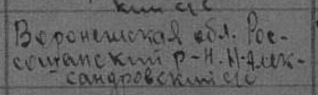 кий с/с
Воронежская обл. Рос-
сошанский р-н. Н-Алек-
сандровский с/с